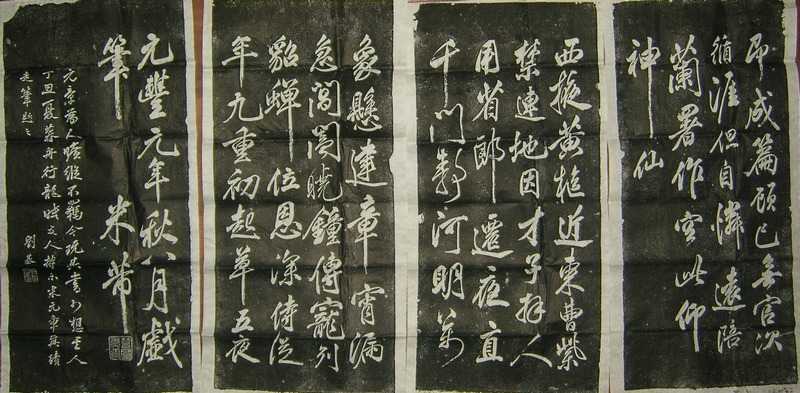 即成篇顧己無官次
循涯但自憐遠陪
蘭署作空此仰
神仙
西掖黃樞近東曹紫
禁連地因才子拜人
用省郎遷夜直
千門靜河明萬
象懸建章宵漏
急閶闔曉鐘傳寵列
貂蟬位恩深侍從
年九重初起草五夜
元豐元年秋八月戲
筆 米芾
元章為人曠縱不羈今玩其書可想其人
丁丑夏暮舟行龍城友人持示米元章真蹟
走筆題之
劉基